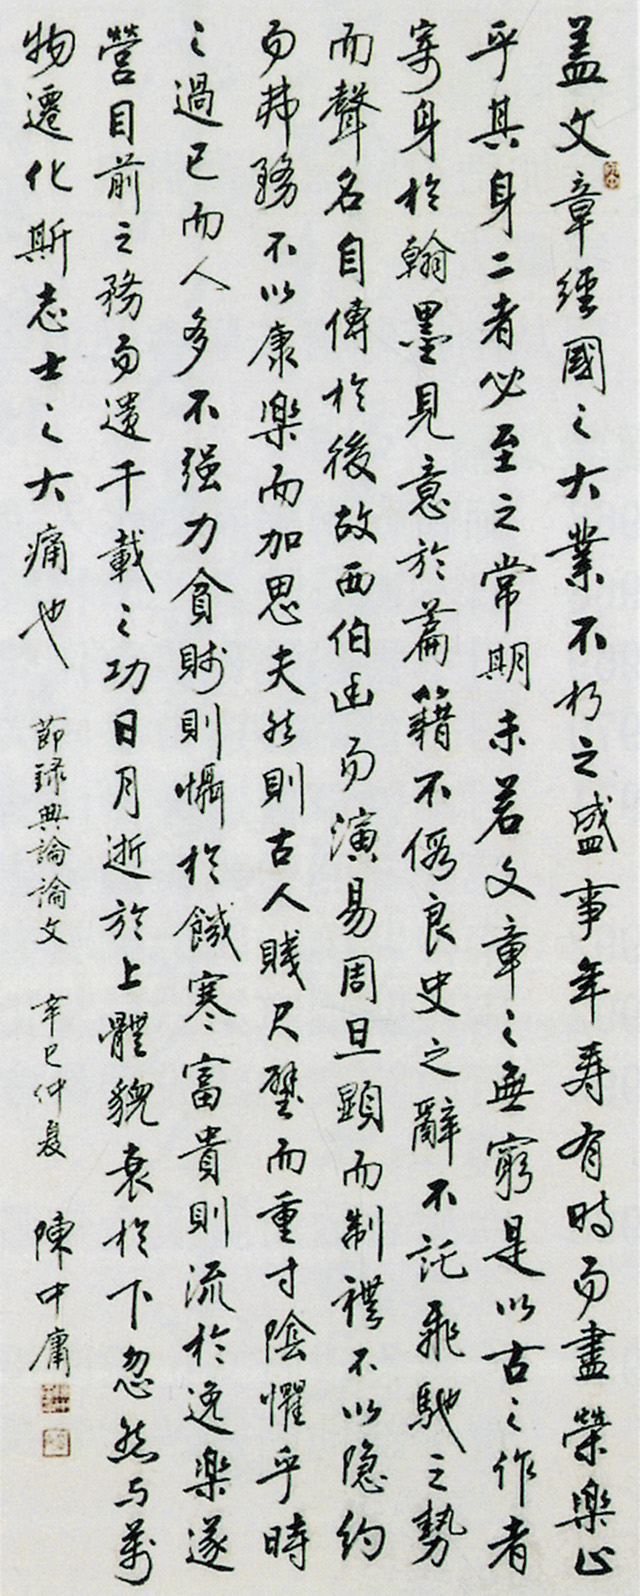 蓋文章經國之大業不朽之盛事年壽有時而盡榮樂止
乎其身二者必至之常期未若文章之無窮是以古之作者
寄身於翰墨見意於篇籍不假良史之辭不託飛馳之勢
而聲名自傳於後故西伯幽而演易周旦顯而制禮不以隐約
而弗務不以康樂而加思夫然則古人賤尺璧而重寸陰懼乎時
之過已而人多不强力貧賤則懾於饑寒富貴則流於逸樂遂
營目前之務而遺千載之功日月逝於上體貌衰於下忽然与萬
物遷化斯志士之大痛也 節録典論論文 辛巳仲夏 陳中庸